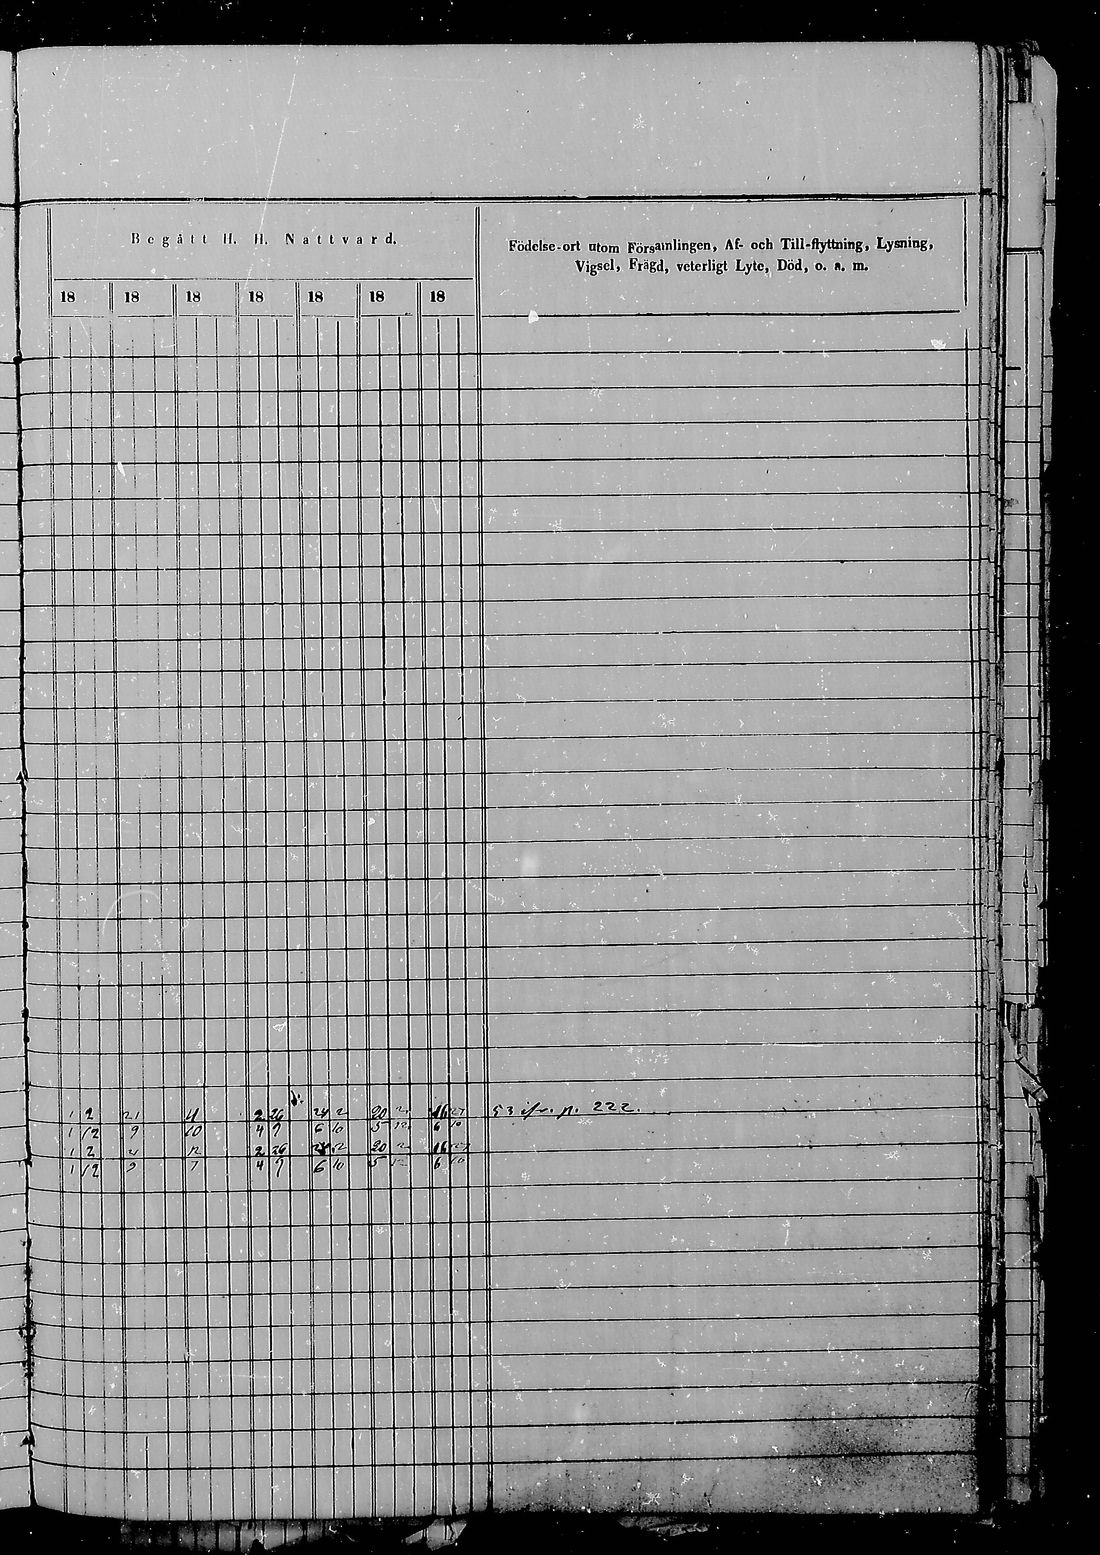 Begått H. H. Nattvard.
Födelse-ort utom Församlingen, Af- och Till-flyttning, Lysning,
Vigsel, Frägd, veterligt Lyte, Död, o. s. m.
18 18 18 18 18 18 18
1 2 21 11 2 26 24 2 20 2 16 27 53 ifr. p. 222.
1 12 9 10 4 9 6 10 5 12 6 10
1 2 21 12 2 26 24 2 20 2 16 27
1 12 9 7 4 9 6 10 5 12 6 10